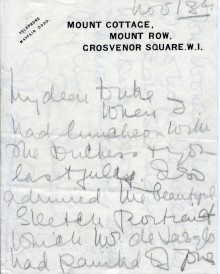 Nov 18th
TELEPHONE
MAYFAIR
MOUNT COTTAGE,
MOUNT ROW,
GROSVENOR SQUARE. W.I.
My dear Duke
When I
had luncheon with
the Duchess & you
last July. I so
admired the beautiful
sketch portrait
which Mr. de Laszlo
had painted of